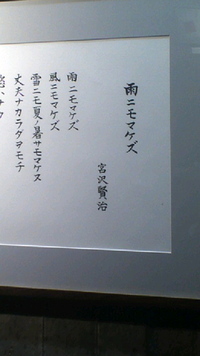 雨ニモマケズ
宮沢賢治
雨ニモマケズ
風ニモマケズ
雪ニモ夏ノ暑サモマケヌ
丈夫ナカラダヲモチ